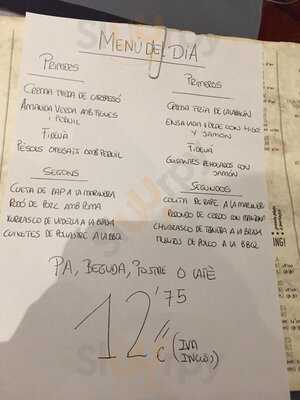 MENÚ DEL DIA
PRIMERS
CREMA FREDA DE CARBASSÓ
AMANIDA VERDA AMB FIGUES
I PERNIL
FIDEUÀ
PÈSOLS OFEGATS AMB PERNIL
SEGONS
CUETA DE RAP A LA MARINERA
RODÓ DE PORC AMB POMA
XURRASCO DE VEDELLA A LA BRASA
CUIXETES DE POLLASTRE A LA BBQ
PRIMEROS
CREMA FRIA DE CALABACÍN
ENSALADA VERDE CON HIGOS
Y JAMÓN
FIDEUÁ
GUISANTES REHOGADOS CON
JAMÓN
SEGUNDOS
COLITA DE RAPE A LA MARINERA
REDONDO DE CERDO CON MANZANA
CHURRASCO DE TERNERA A LA BRASA
MUSLITOS DE POLLO A LA BBQ
PA, BEGUDA, POSTRE O CAFÈ
12'75 €
(IVA
INCLÒS)